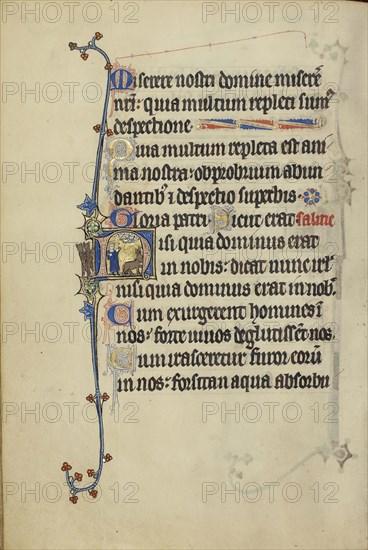 Miserere nostri domine miserē
nr̄i: quia multum repleti sumꝰ
despectione.
Quia multum repleta est ani
ma nostra: obprobrium abun
dantibꝫ ⁊ despectio superbis.
Gloria patri. Sicut erat.
Nisi quia dominus erat
in nobis: dicat nunc isrl̄
nisi quia dominus erat in nob̄.
Cum exurgerent homines ī
nos: forte vivos deglutissēt nos.
Cum irasceretur furor eorū
in nos: forsitan aqua absorbu